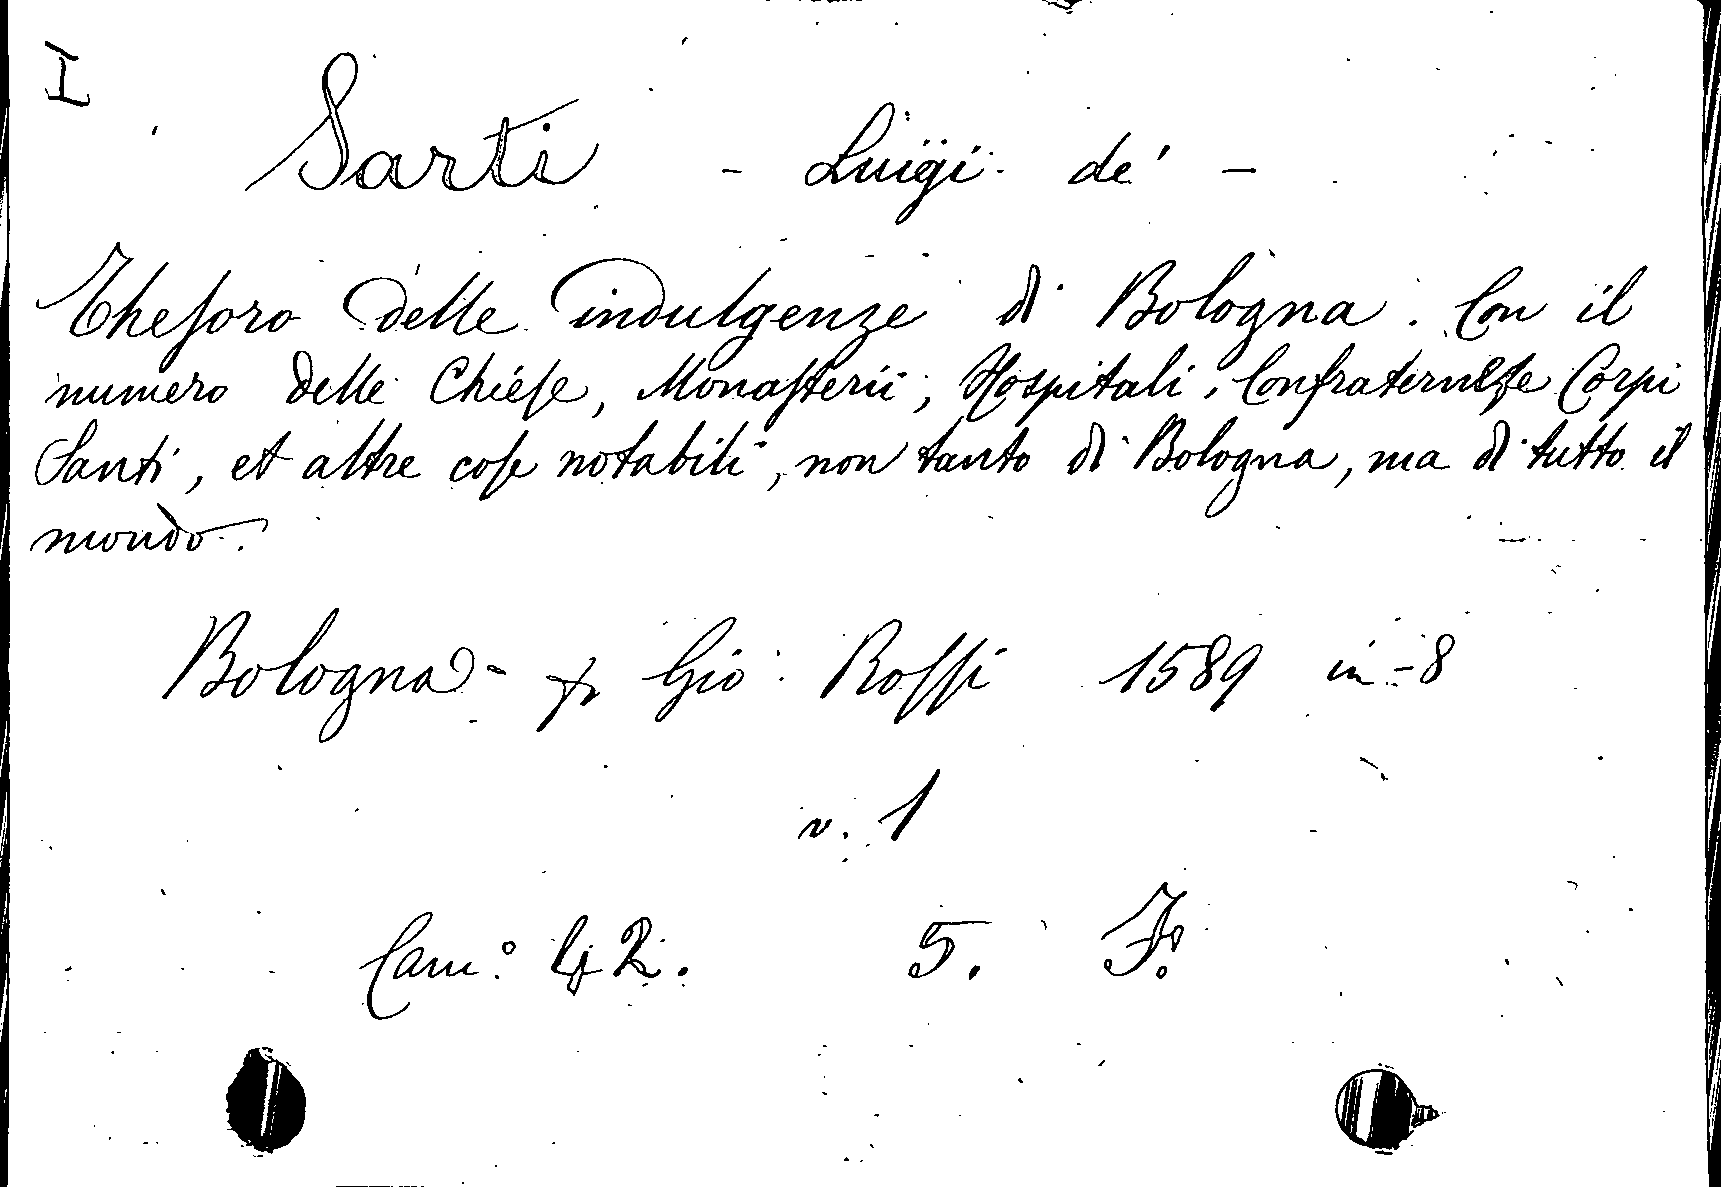 I
Sarti - Luigi de' -
Theſoro delle indulgenze di Bologna. Con il
numero delle Chieſe, Monaſterii, Hospitali, Confraternite Corpi
Santi, et altre coſe notabili, non tanto di Bologna, ma di tutto il
mondo.
Bologna - Gio: Roſſi 1589 in-8
v. 1
Cam.° 42. 5.